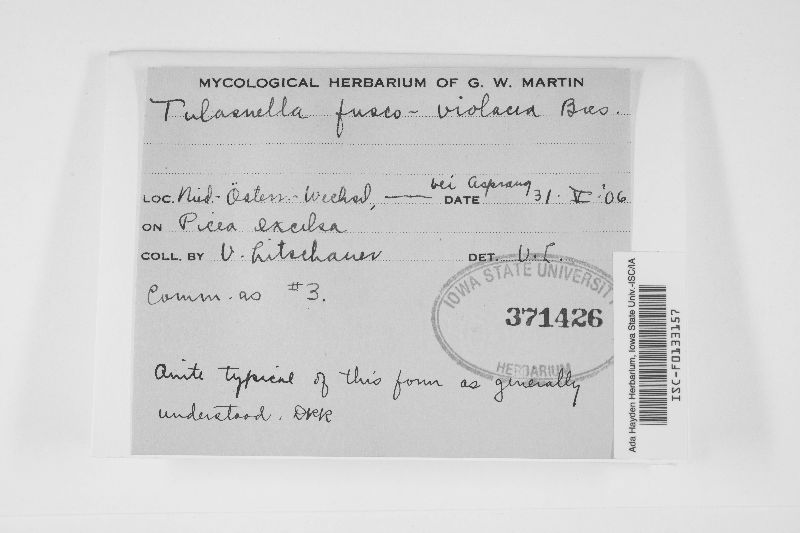 MYCOLOGICAL HERBARIUM OF G. W. MARTIN
Tulasnella fusco-violacea Bres.
LOC. Nied.-Österr.-Wechsel, — bei Aspang DATE 31. V. '06
ON Picea excelsa
COLL. BY V. Litschauer DET. V. L.
Comm. as #3.
IOWA STATE UNIVERSITY
371426
HERBARIUM
Quite typical of this form as generally
understood. DPR
Ada Hayden Herbarium, Iowa State Univ.-ISC/IA
ISC-F0133157